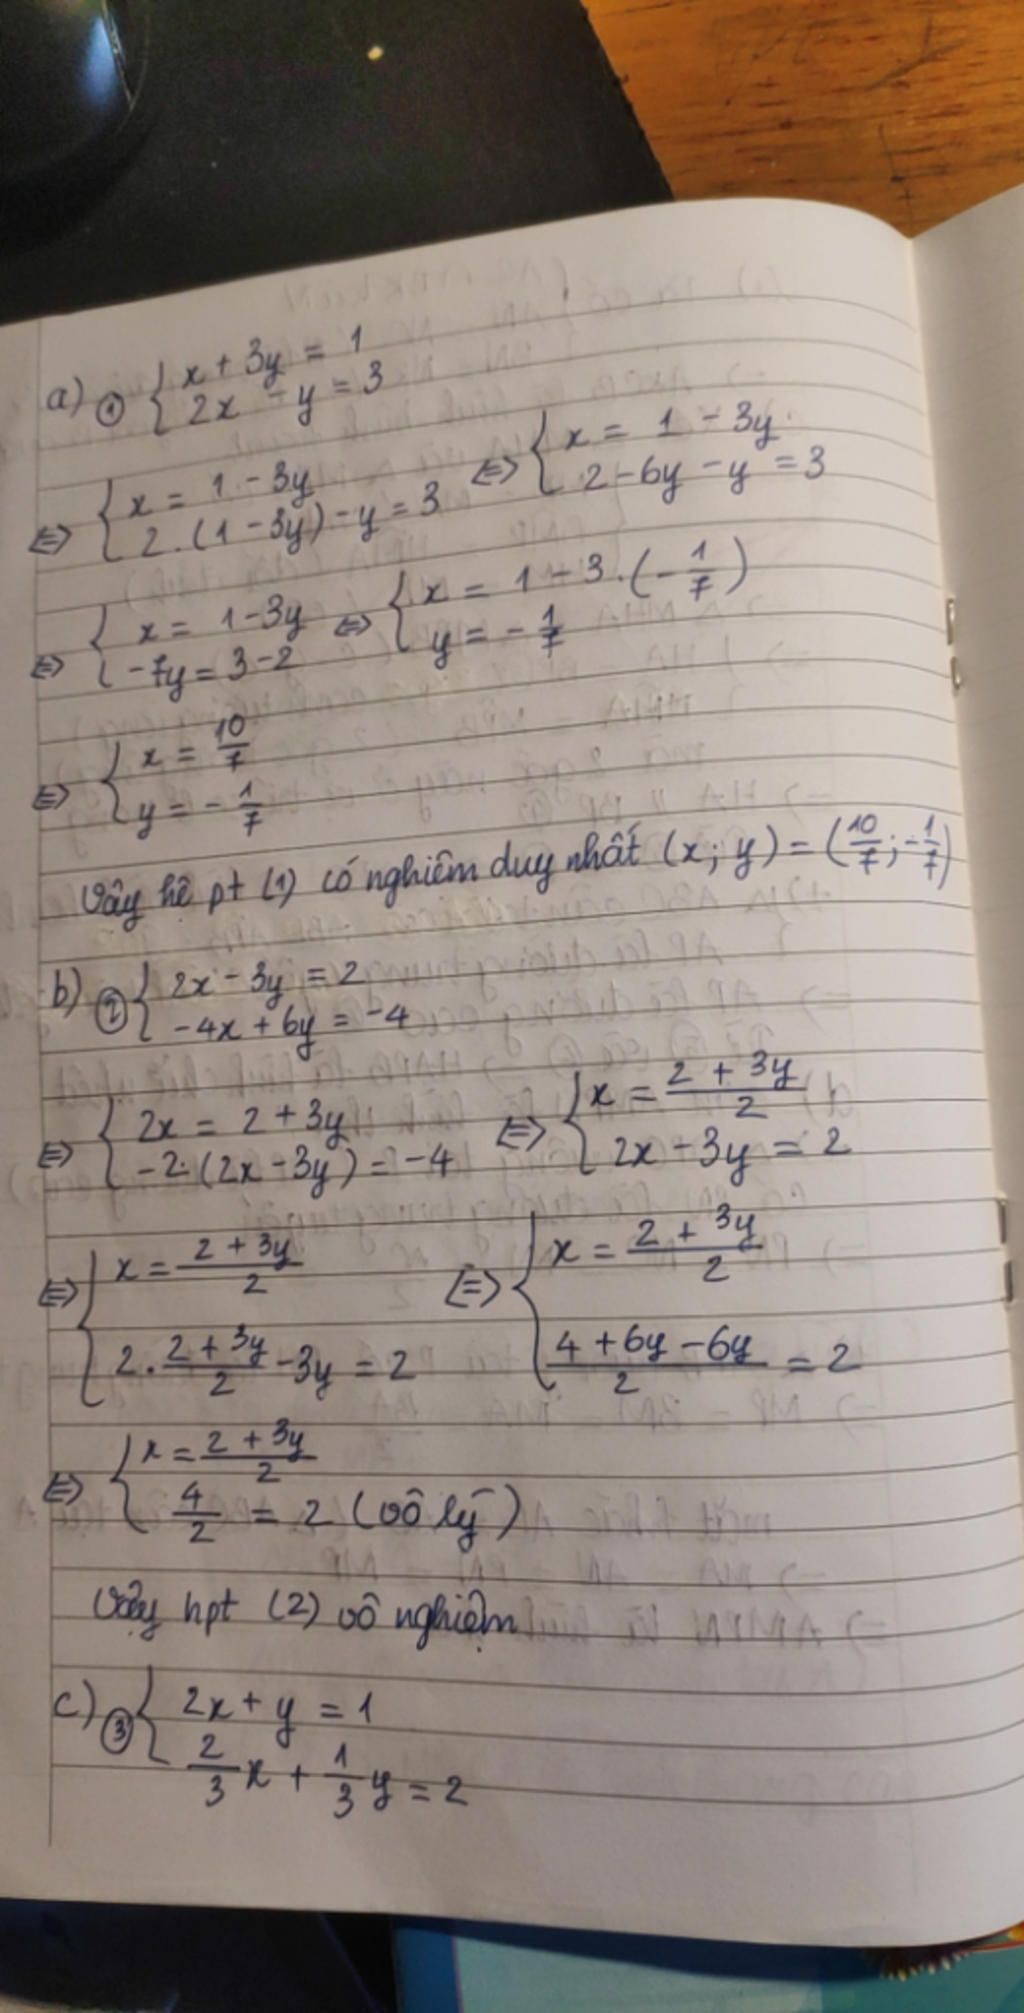 a) ① { x + 3y = 1
2x - y = 3
⇔ { x = 1 - 3y
2.(1 - 3y) - y = 3 ⇔ { x = 1 - 3y
2 - 6y - y = 3
⇔ { x = 1 - 3y
-7y = 3 - 2 ⇔ { x = 1 - 3.(-1/7)
y = -1/7
⇔ { x = 10/7
y = -1/7
Vậy hệ pt (1) có nghiệm duy nhất (x; y) = (10/7; -1/7)
b) ② { 2x - 3y = 2
-4x + 6y = -4
⇔ { 2x = 2 + 3y
-2.(2x - 3y) = -4 ⇔ { x = (2 + 3y)/2
2x - 3y = 2
⇔ { x = (2 + 3y)/2
2.(2 + 3y)/2 - 3y = 2 ⇔ { x = (2 + 3y)/2
(4 + 6y - 6y)/2 = 2
⇔ { x = (2 + 3y)/2
4/2 = 2 (vô lý)
Vậy hpt (2) vô nghiệm
c) ③ { 2x + y = 1
2/3 x + 1/3 y = 2